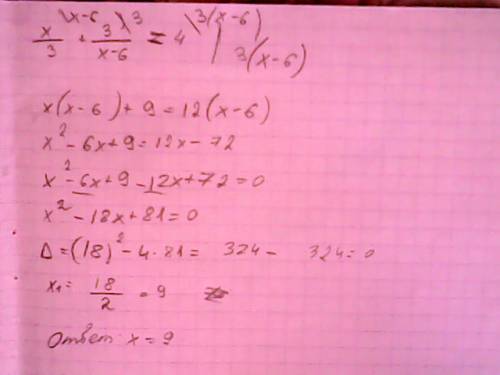 x/3 \x-6 + 3/(x-6) \3 = 4 \3(x-6) | 3(x-6)
x(x-6)+9=12(x-6)
x²-6x+9=12x-72
x²-6x+9-12x+72=0
x²-18x+81=0
Δ=(18)²-4·81= 324- 324=0
x₁= 18/2 =9
Ответ x=9